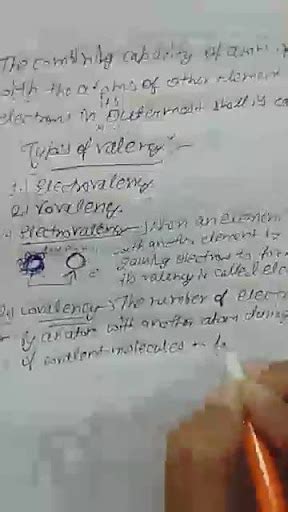 The combining capacity of atoms
with the atoms of other element
its
electrons in outermost shell is ca
Types of valency :-
1.) Electrovalency
2.) Covalency
Electrovalency → When an element
with another element by
gaining electron to form
its valency is called elec
e⁻
2) Covalency → The number of electr
of an atom with another atom during
of covalent molecules